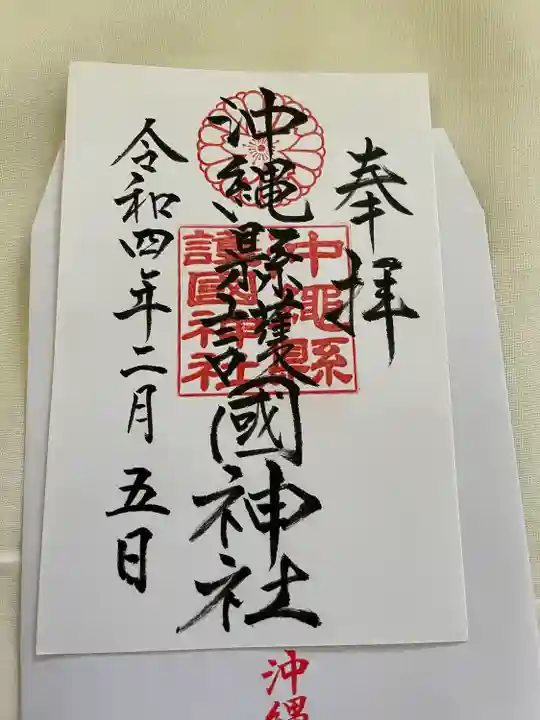 奉拝
沖縄縣護國神社
沖縄縣
護國神社
令和四年二月五日
沖縄